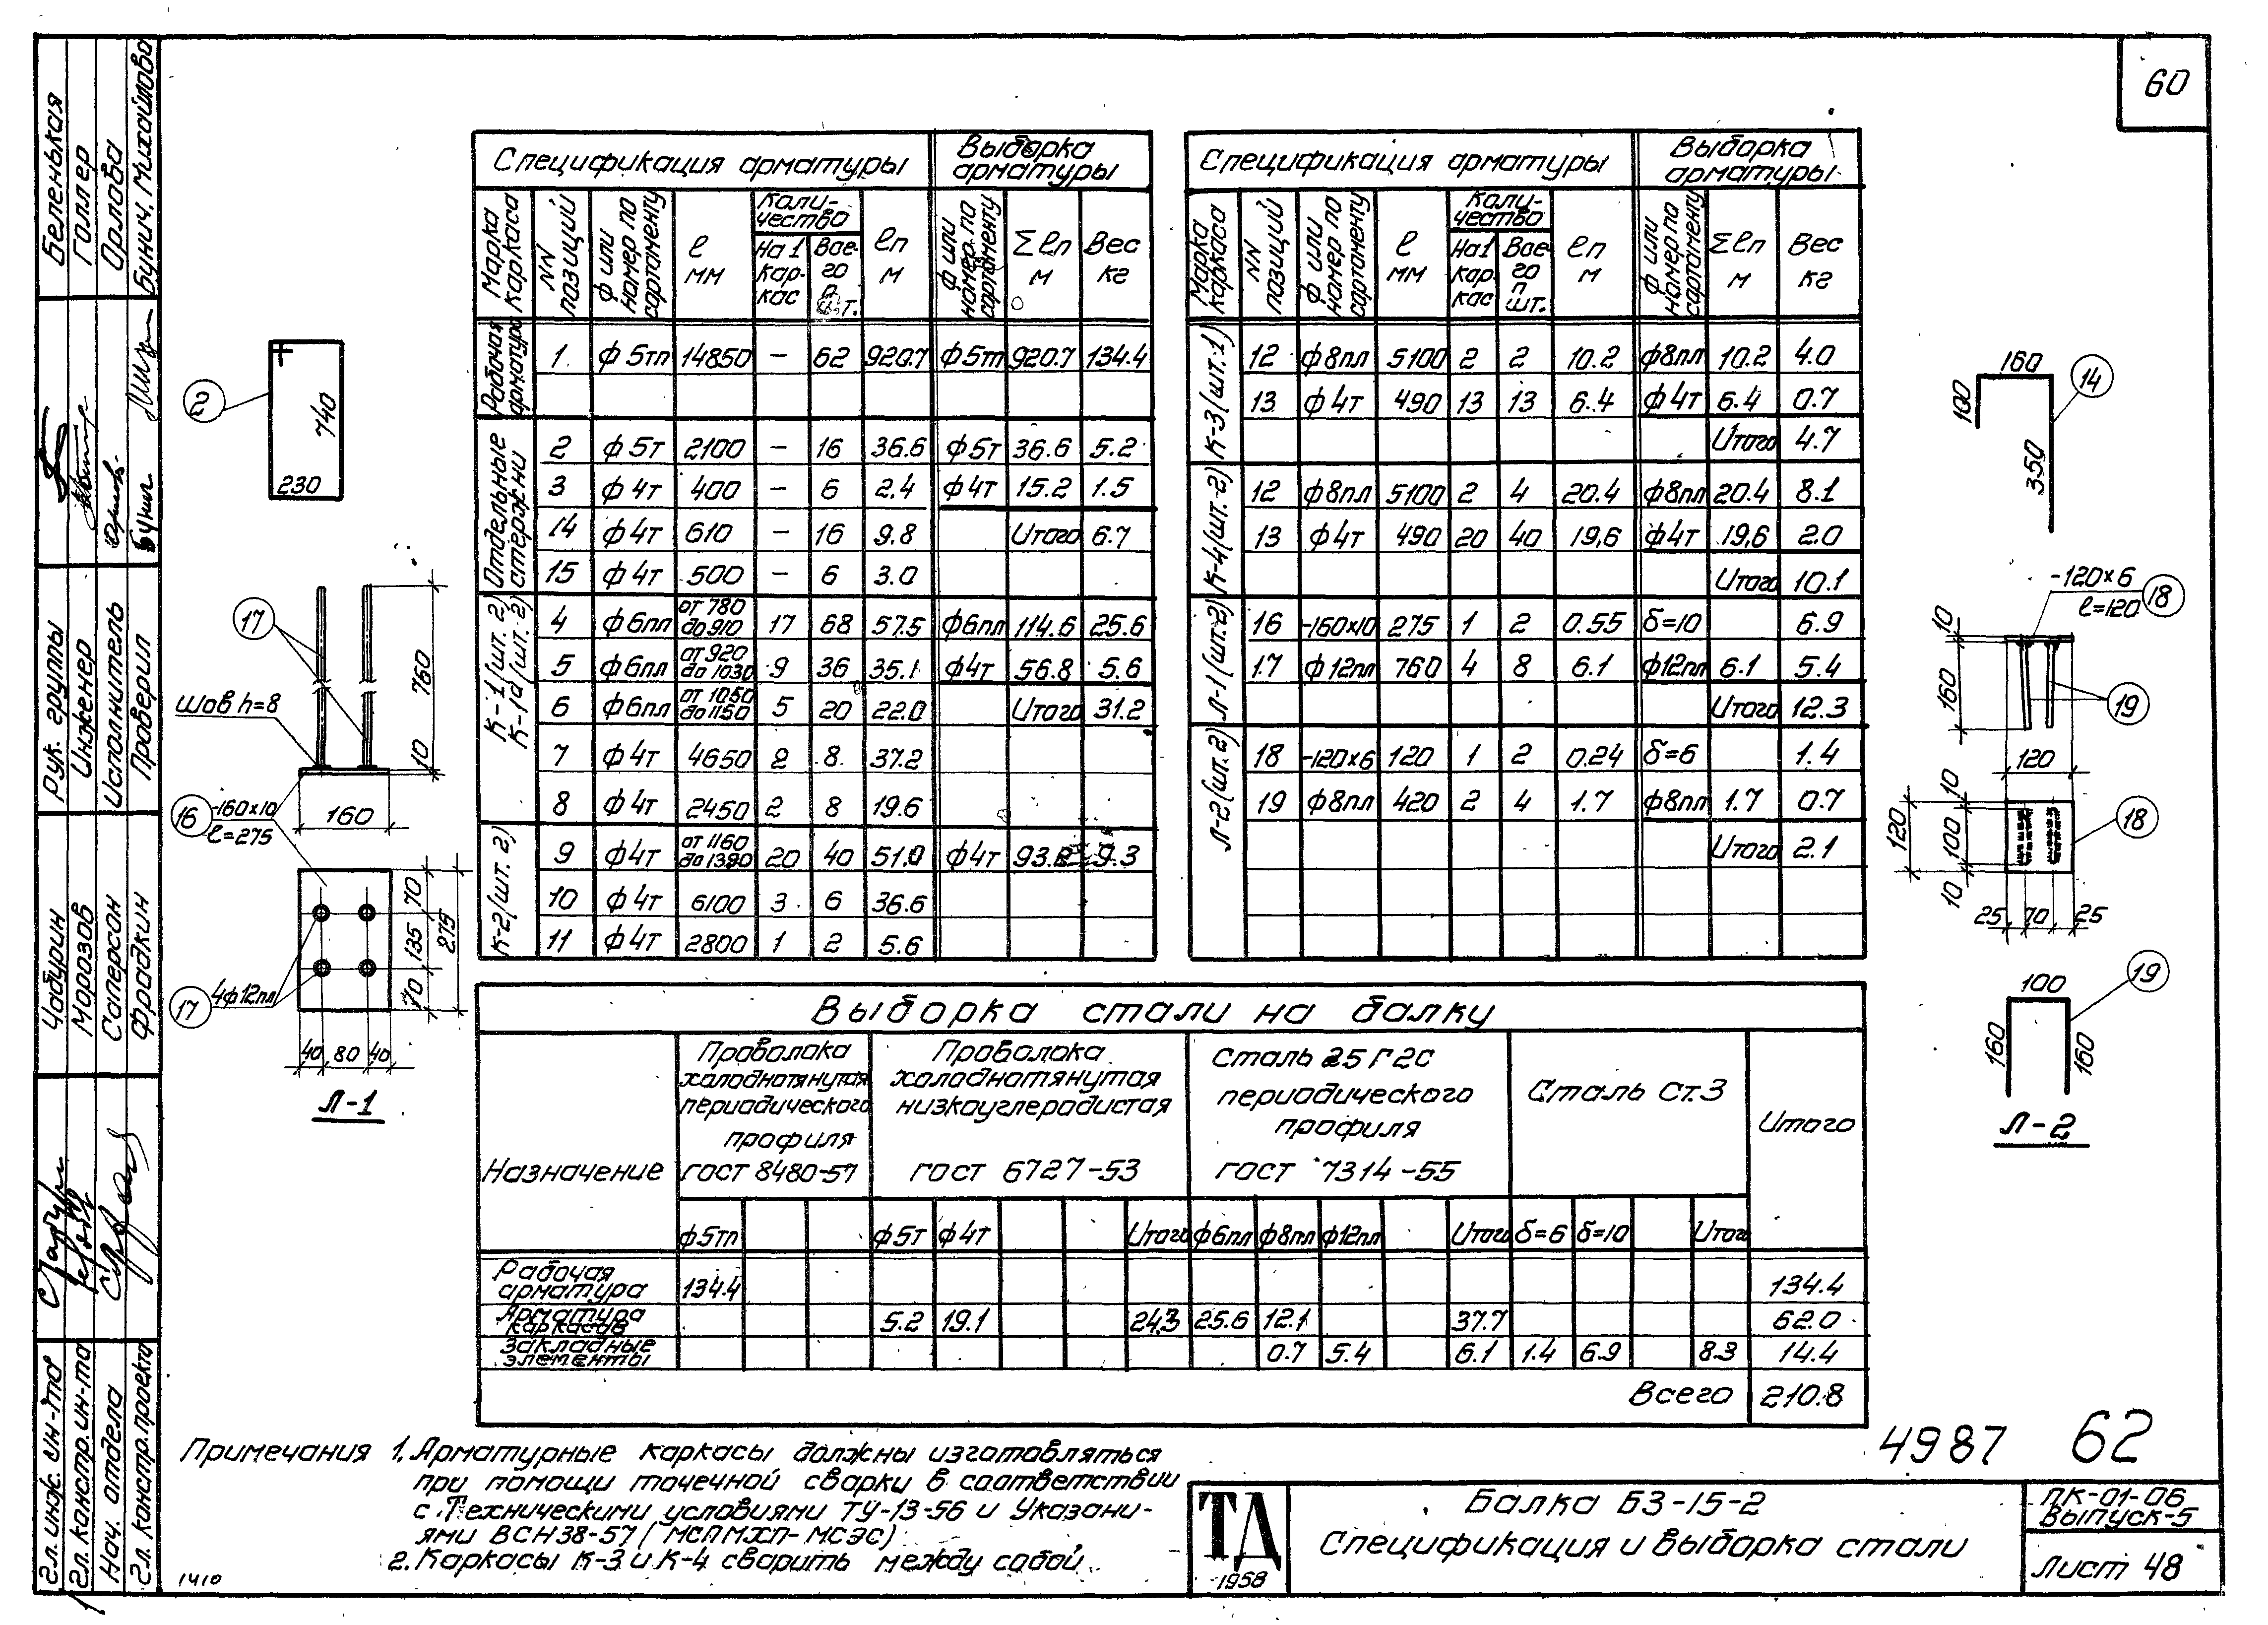 60
Спецификация арматуры
Выборка арматуры
Марка каркаса
NN позиций
ф или номер по сортаменту
ℓ мм
Количество
На 1 каркас
Всего п шт.
ℓп м
ф или номер по сортаменту
Σℓп м
Вес кг
Рабочая арматура
1 ф5тп 14850 – 62 920.7 ф5тп 920.7 134.4
Отдельные стержни
2 ф5т 2100 – 16 36.6 ф5т 36.6 5.2
3 ф4т 400 – 6 2.4 ф4т 15.2 1.5
14 ф4т 610 – 16 9.8 Итого 6.7
15 ф4т 500 – 6 3.0
К-1 (шт. 2)
К-1а (шт. 2)
4 ф6пл от 780 до 910 17 68 57.5 ф6пл 114.6 25.6
5 ф6пл от 920 до 1030 9 36 35.1 ф4т 56.8 5.6
6 ф6пл от 1050 до 1150 5 20 22.0 Итого 31.2
7 ф4т 4650 2 8 37.2
8 ф4т 2450 2 8 19.6
К-2 (шт. 2)
9 ф4т от 1160 до 1390 20 40 51.0 ф4т 93.2 9.3
10 ф4т 6100 3 6 36.6
11 ф4т 2800 1 2 5.6
Спецификация арматуры
Выборка арматуры
Марка каркаса
NN позиций
ф или номер по сортаменту
ℓ мм
Количество
На 1 каркас
Всего п шт.
ℓп м
ф или номер по сортаменту
Σℓп м
Вес кг
К-3 (шт. 1)
12 ф8пл 5100 2 2 10.2 ф8пл 10.2 4.0
13 ф4т 490 13 13 6.4 ф4т 6.4 0.7
Итого 4.7
К-4 (шт. 2)
12 ф8пл 5100 2 4 20.4 ф8пл 20.4 8.1
13 ф4т 490 20 40 19,6 ф4т 19,6 2.0
Итого 10.1
Л-1 (шт. 2)
16 -160×10 275 1 2 0.55 δ=10 6.9
17 ф12пл 760 4 8 6.1 ф12пл 6.1 5.4
Итого 12.3
Л-2 (шт. 2)
18 -120×6 120 1 2 0.24 δ=6 1.4
19 ф8пл 420 2 4 1.7 ф8пл 1.7 0.7
Итого 2.1
2
740
230
17
760
10
Шов h=8
16 -160×10
ℓ=275
160
70
135
70
275
17 4ф12пл
40 80 40
Л-1
160
100
350
14
-120×6
ℓ=120
18
10
160
19
120
10
100
10
120
18
25 70 25
100
160
160
19
Л-2
Выборка стали на балку
Назначение
Проволока холоднотянутая периодического профиля ГОСТ 8480-57
Проволока холоднотянутая низкоуглеродистая ГОСТ 6727-53
Сталь 25Г2С периодического профиля ГОСТ 7314-55
Сталь Ст.3
Итого
ф5тп ф5т ф4т Итого ф6пл ф8пл ф12пл Итого δ=6 δ=10 Итого
Рабочая арматура 134.4 134.4
Арматура каркасов 5.2 19.1 24.3 25.6 12.1 37.7 62.0
Закладные элементы 0.7 5.4 6.1 1.4 6.9 8.3 14.4
Всего 210.8
Примечания 1. Арматурные каркасы должны изготовляться
при помощи точечной сварки в соответствии
с „Техническими условиями ТУ-13-56 и Указани-
ями ВСН38-57 (МСПМХП-МСЭС)
2. Каркасы К-3 и К-4 сварить между собой.
1410
4987 62
ТД
1958
Балка Б3-15-2
Спецификация и выборка стали
ПК-01-06
Выпуск-5
Лист 48
Беленькая
Голлер
Орлова
Бунич, Михайлова
Рук. группы
Инженер
Исполнитель
Проверил
Чабурин
Морозов
Саперсон
Фрадкин
Гл. инж. ин-та
Гл. констр. ин-та
Нач. отдела
Гл. констр. проекта